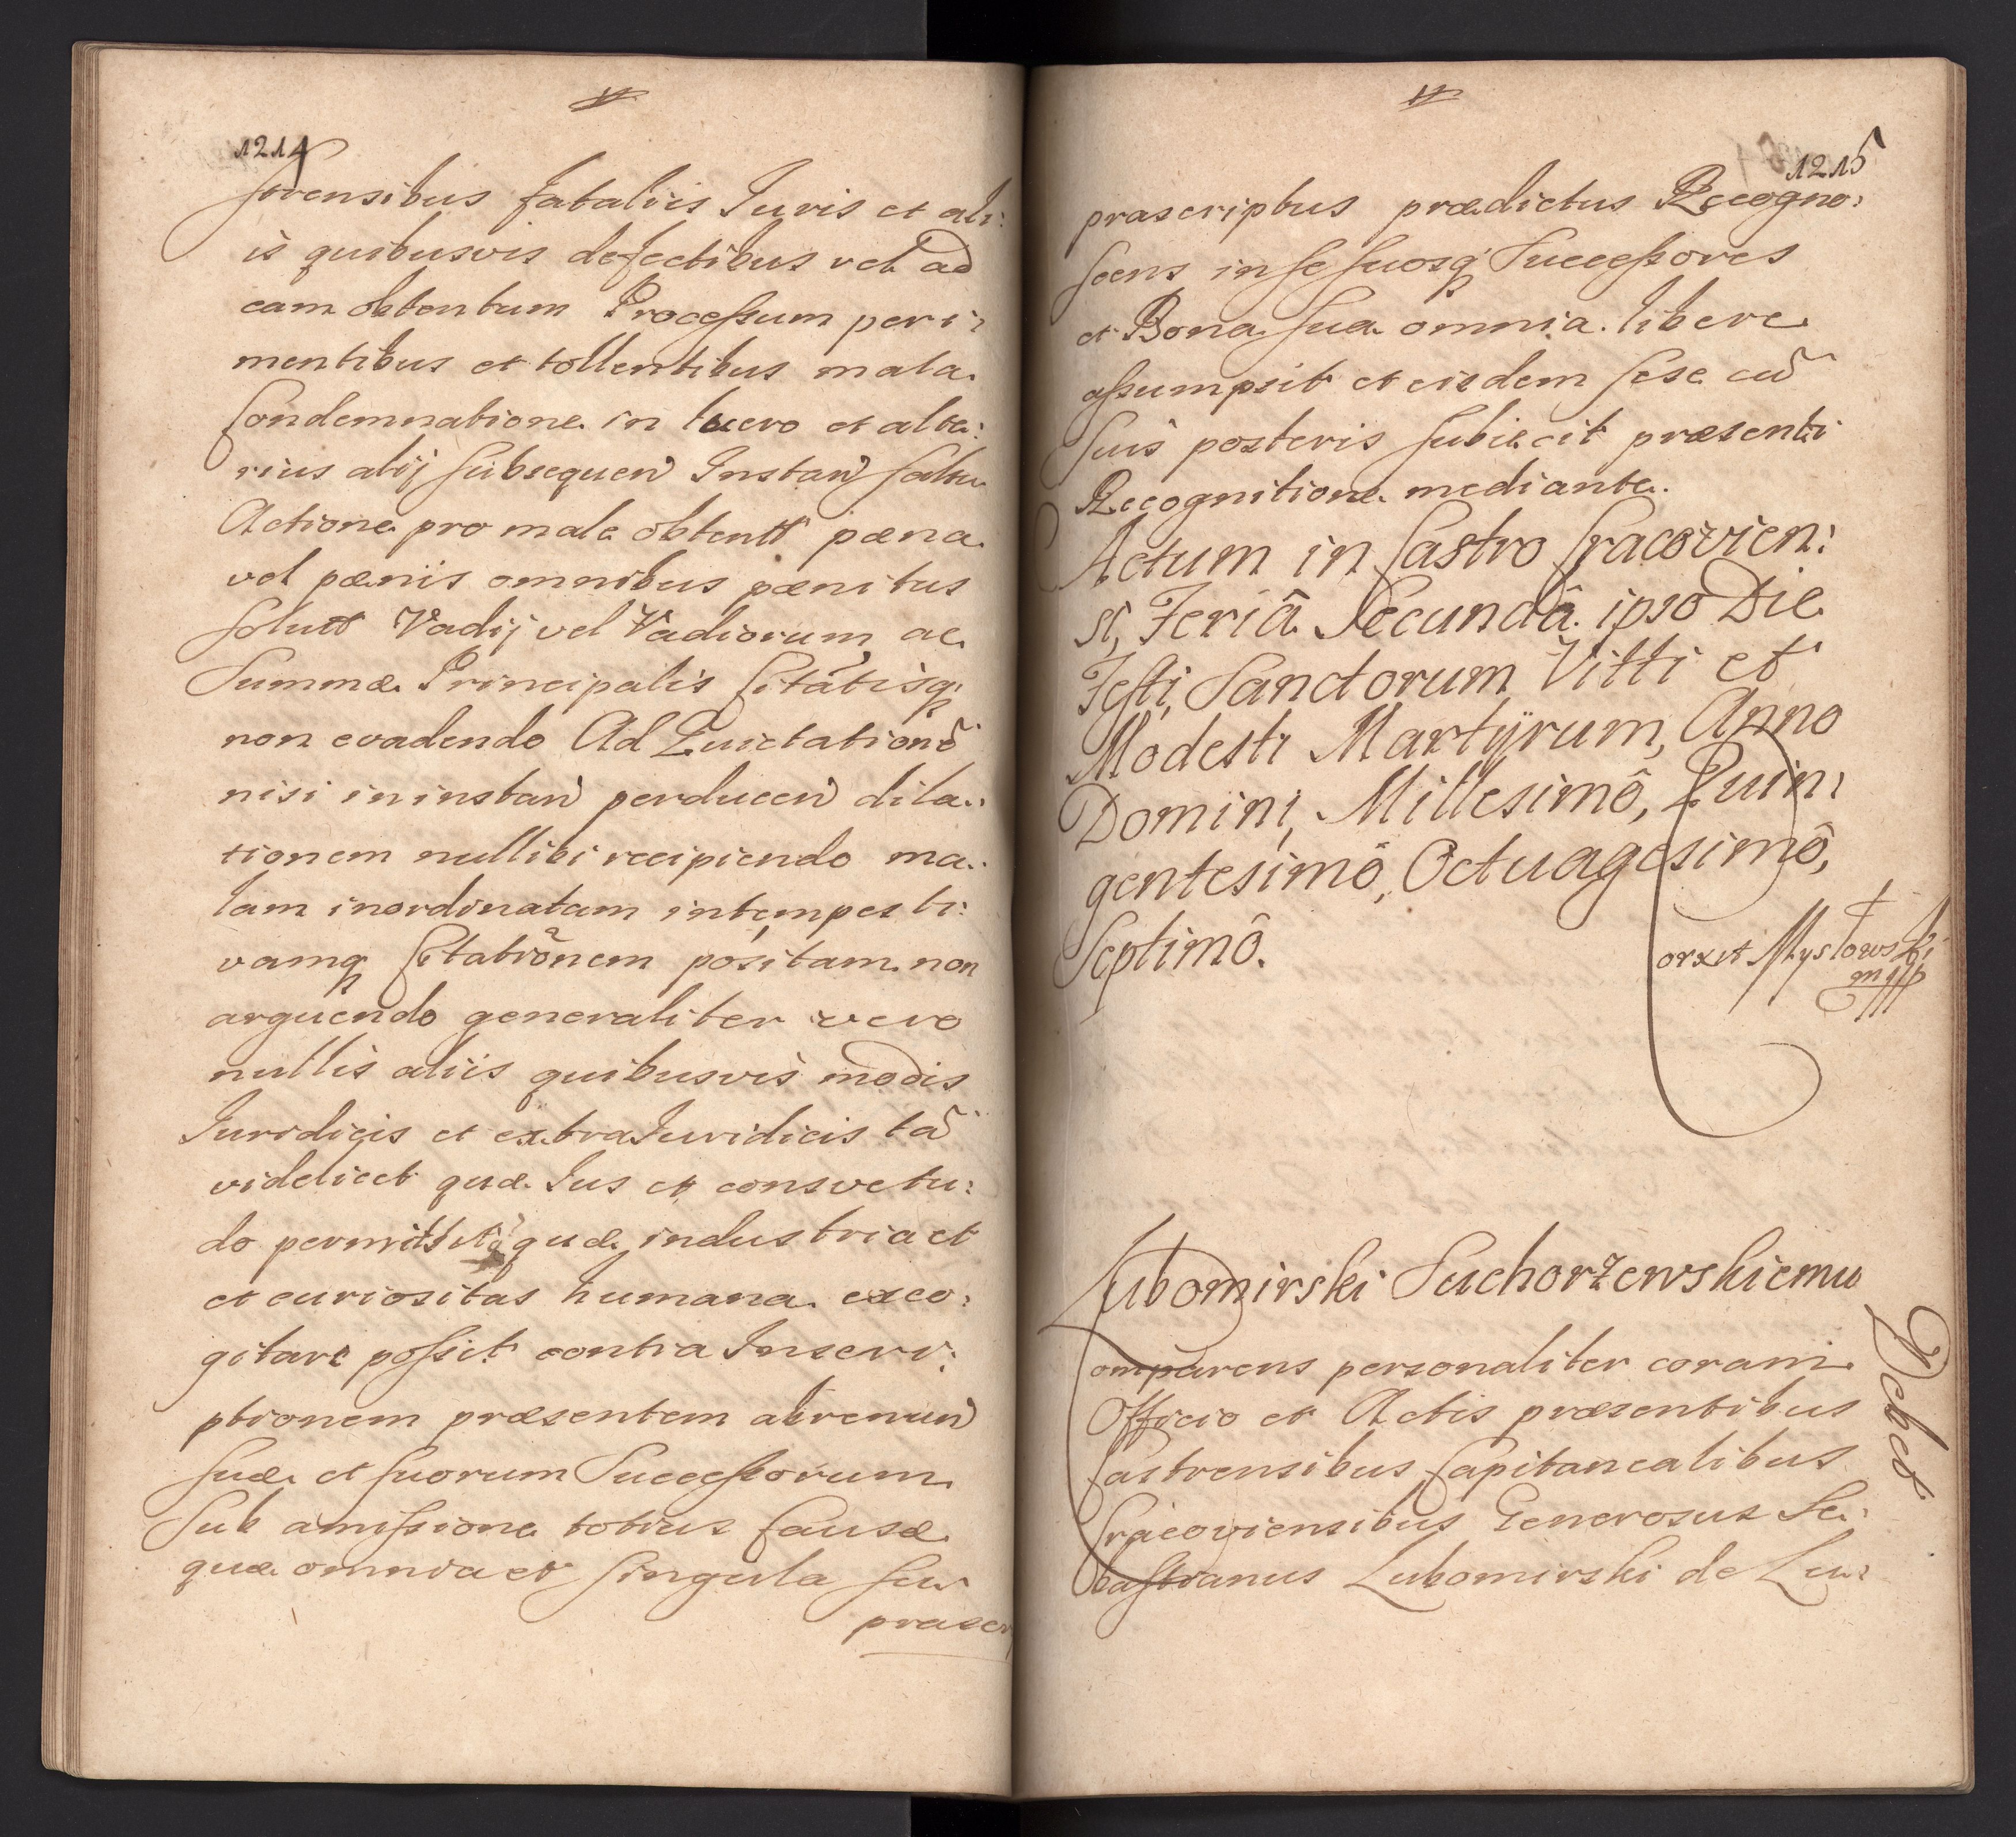 1214
forensibus fataliis Iuris et ali:
is quibusvis defectibus vel ad
eam obtentum Processum peri:
mentibus et tollentibus mala
Condemnatione in lucro et alte:
rius alij subsequen Instan saltu
Actione pro male obtentt pæna
vel pæniis omnibus pænitus
solutt Vadij vel Vadiorum ac
Summæ Principalis Citatisq
non evadendo Ad Quietationẽ
nisi in instan perducen dila:
tionem nullibi recipiendo ma:
lam inordinatam intempesti:
vamq Citationem positam non
arguendo generaliter vero
nullis aliis quibusvis modis
Iuridicis et extraIuridicis tã
videlicet quæ Ius et consvetu:
do permittit quæ industria et
et curiositas humana exco:
gitare possit contra Inscri:
ptionem præsentem abrenun
suæ et suorum Successorum
Sub amissione totius Causæ
quæ omnia et singula su
præscr
1215
præscriptus prædictus Recogno:
scens in se suosq Successores
et Bona sua omnia libere
assumpsit et eisdem sese cũ
suis posteris subiecit præsenti
Recognitione mediante.
Actum in Castro Cracovien:
si, Feriâ Secundâ ipso Die
Festi Sanctorum Vitti et
Modesti Martÿrum, Anno
Domini, Millesimô, Quin:
gentesimô, Octuagesimô,
Septimô.
orxit Mysłowski
mpp
Lubomirski Suchorzewskiemu
Debet
Comparens personaliter coram
Officio et Actis præsentibus
Castrensibus Capitanealibus
Cracoviensibus Generosus Se:
bastianus Lubomirski de Lu: